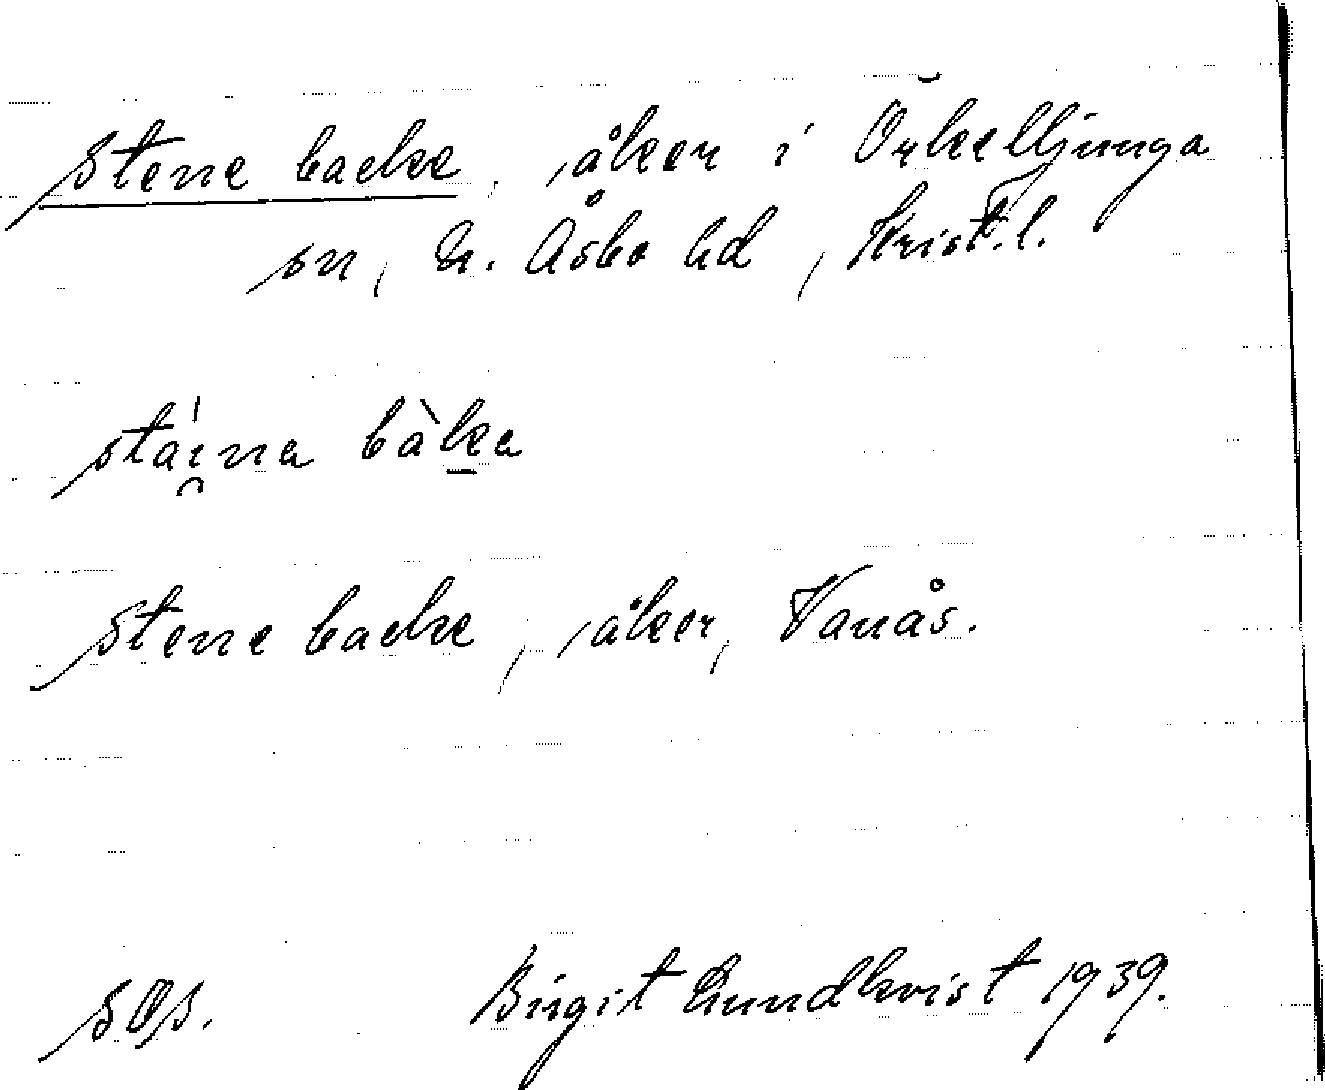 Stene backe, åker i Örkelljunga
sn, N. Åsbo hd, Krist. l.
stái̯na bàka
Stene backe, åker, Vanås.
SOS. Birgit Lundkvist 1939.